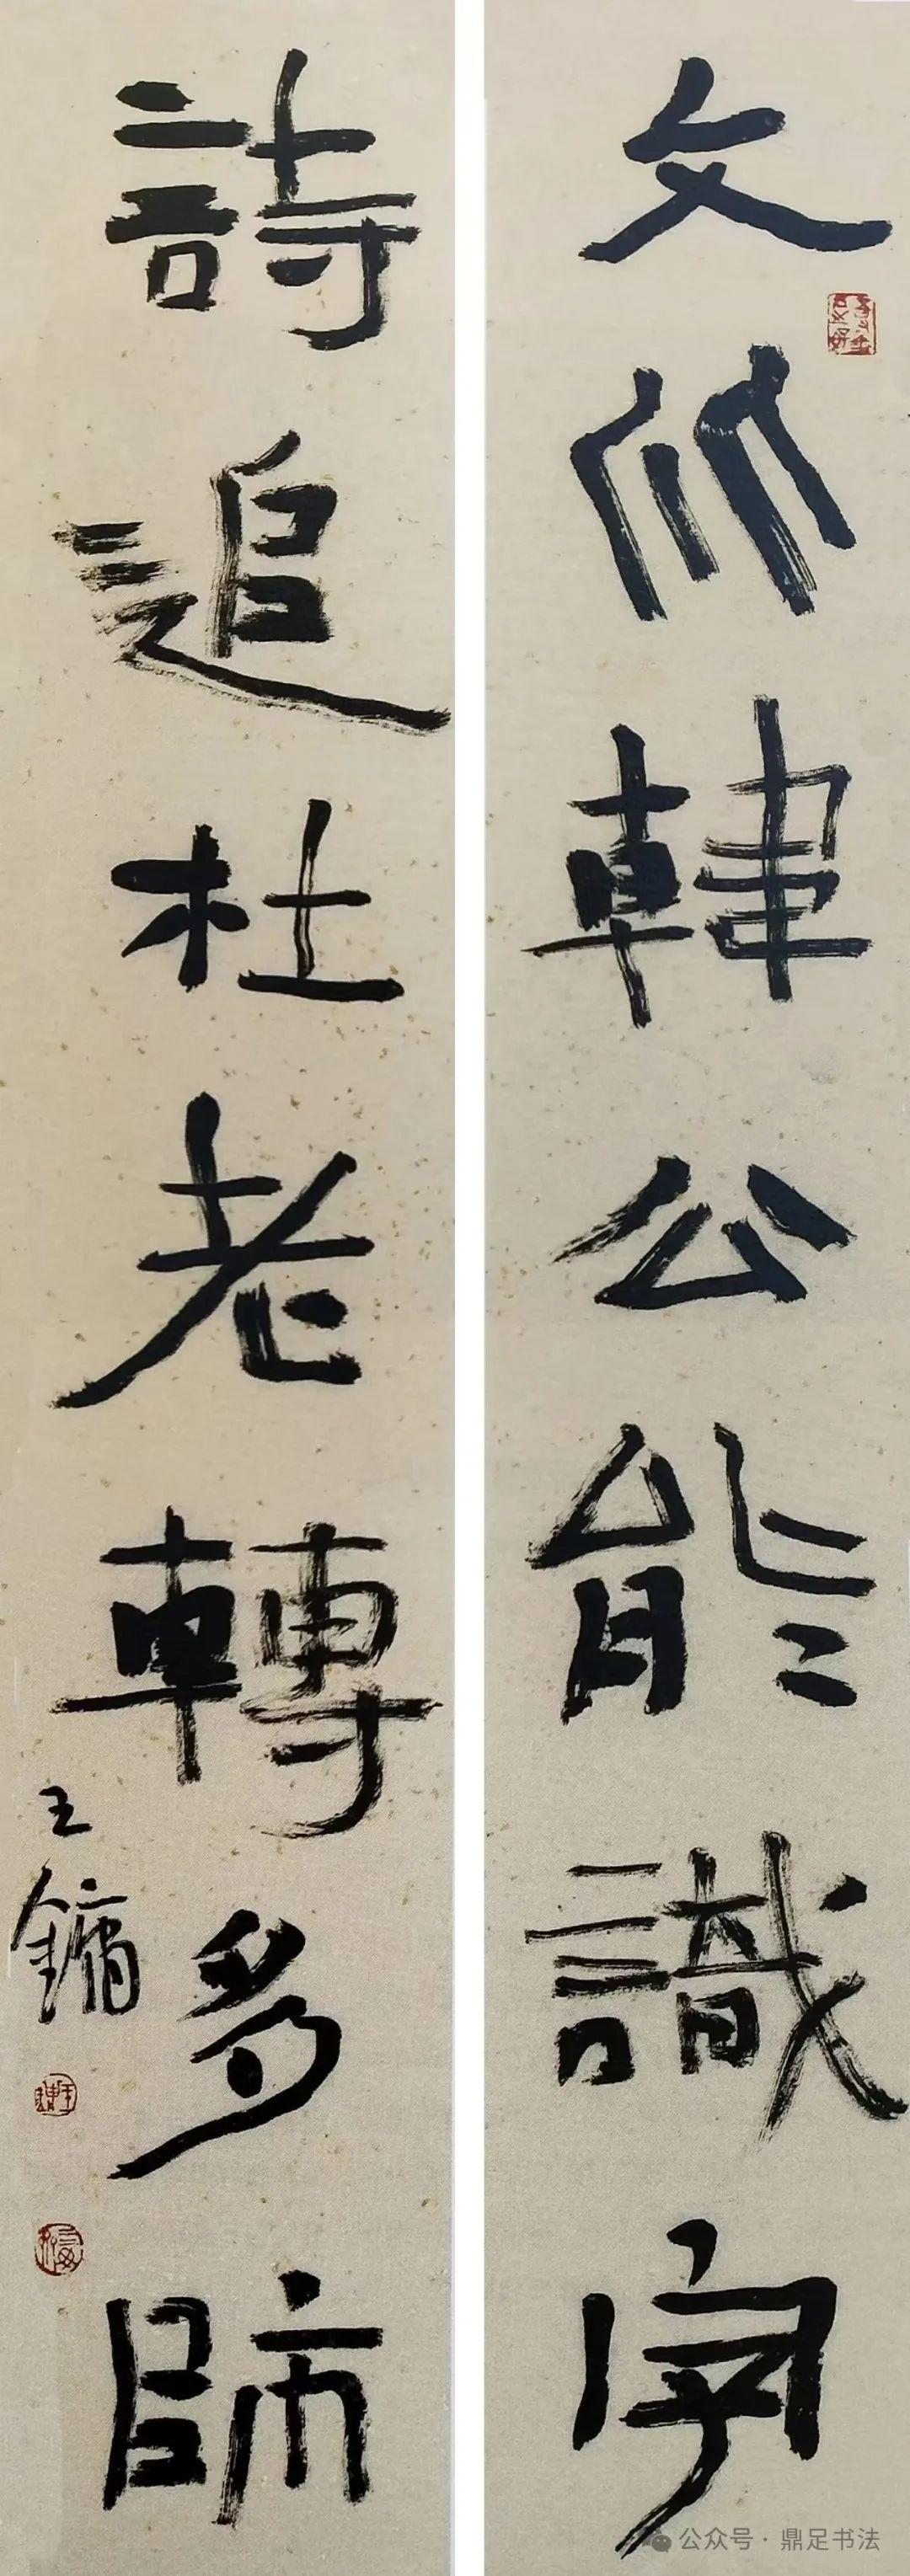 文似韓公能識字
詩追杜老轉多師
王鏞
公众号·鼎足书法